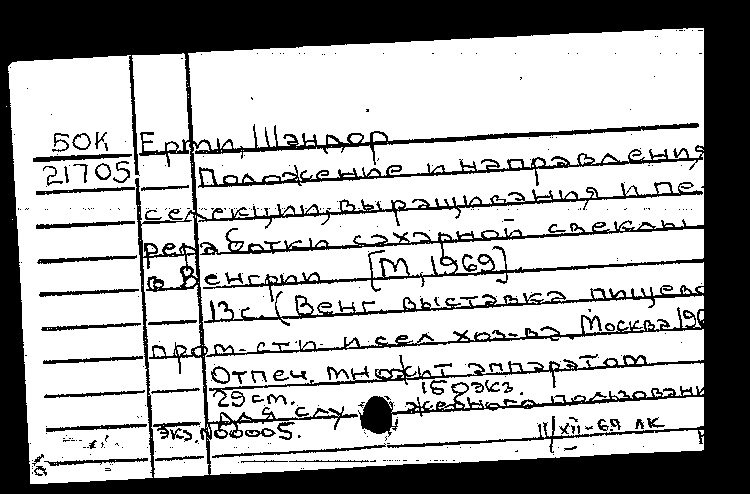 БОК Ерти, Шандор
21705 Положение и направления
селекции, выращивания и пе-
реработки сахарной свеклы
в Венгрии [М, 1969].
13с. (Венг. выставка пищево
пром-сти и сел хоз-ва. Москва 196
Отпеч. множит аппаратом
29 см. 150экз.
Для служебного пользовани
экз. №00005. 11/XII-69 ЛК